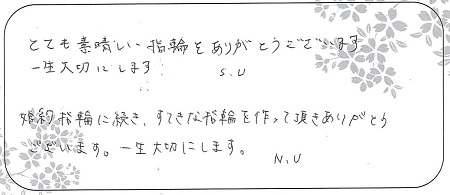 とても素晴しい指輪をありがとうございます
一生大切にします
S.U
婚約指輪に続き、すてきな指輪を作って頂きありがとう
ございます。一生大切にします。
N.U